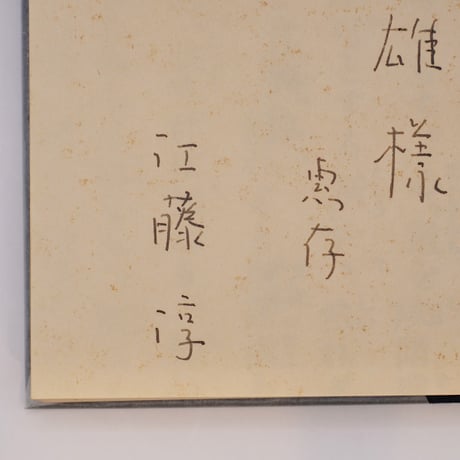 雄様
恵存
江藤淳